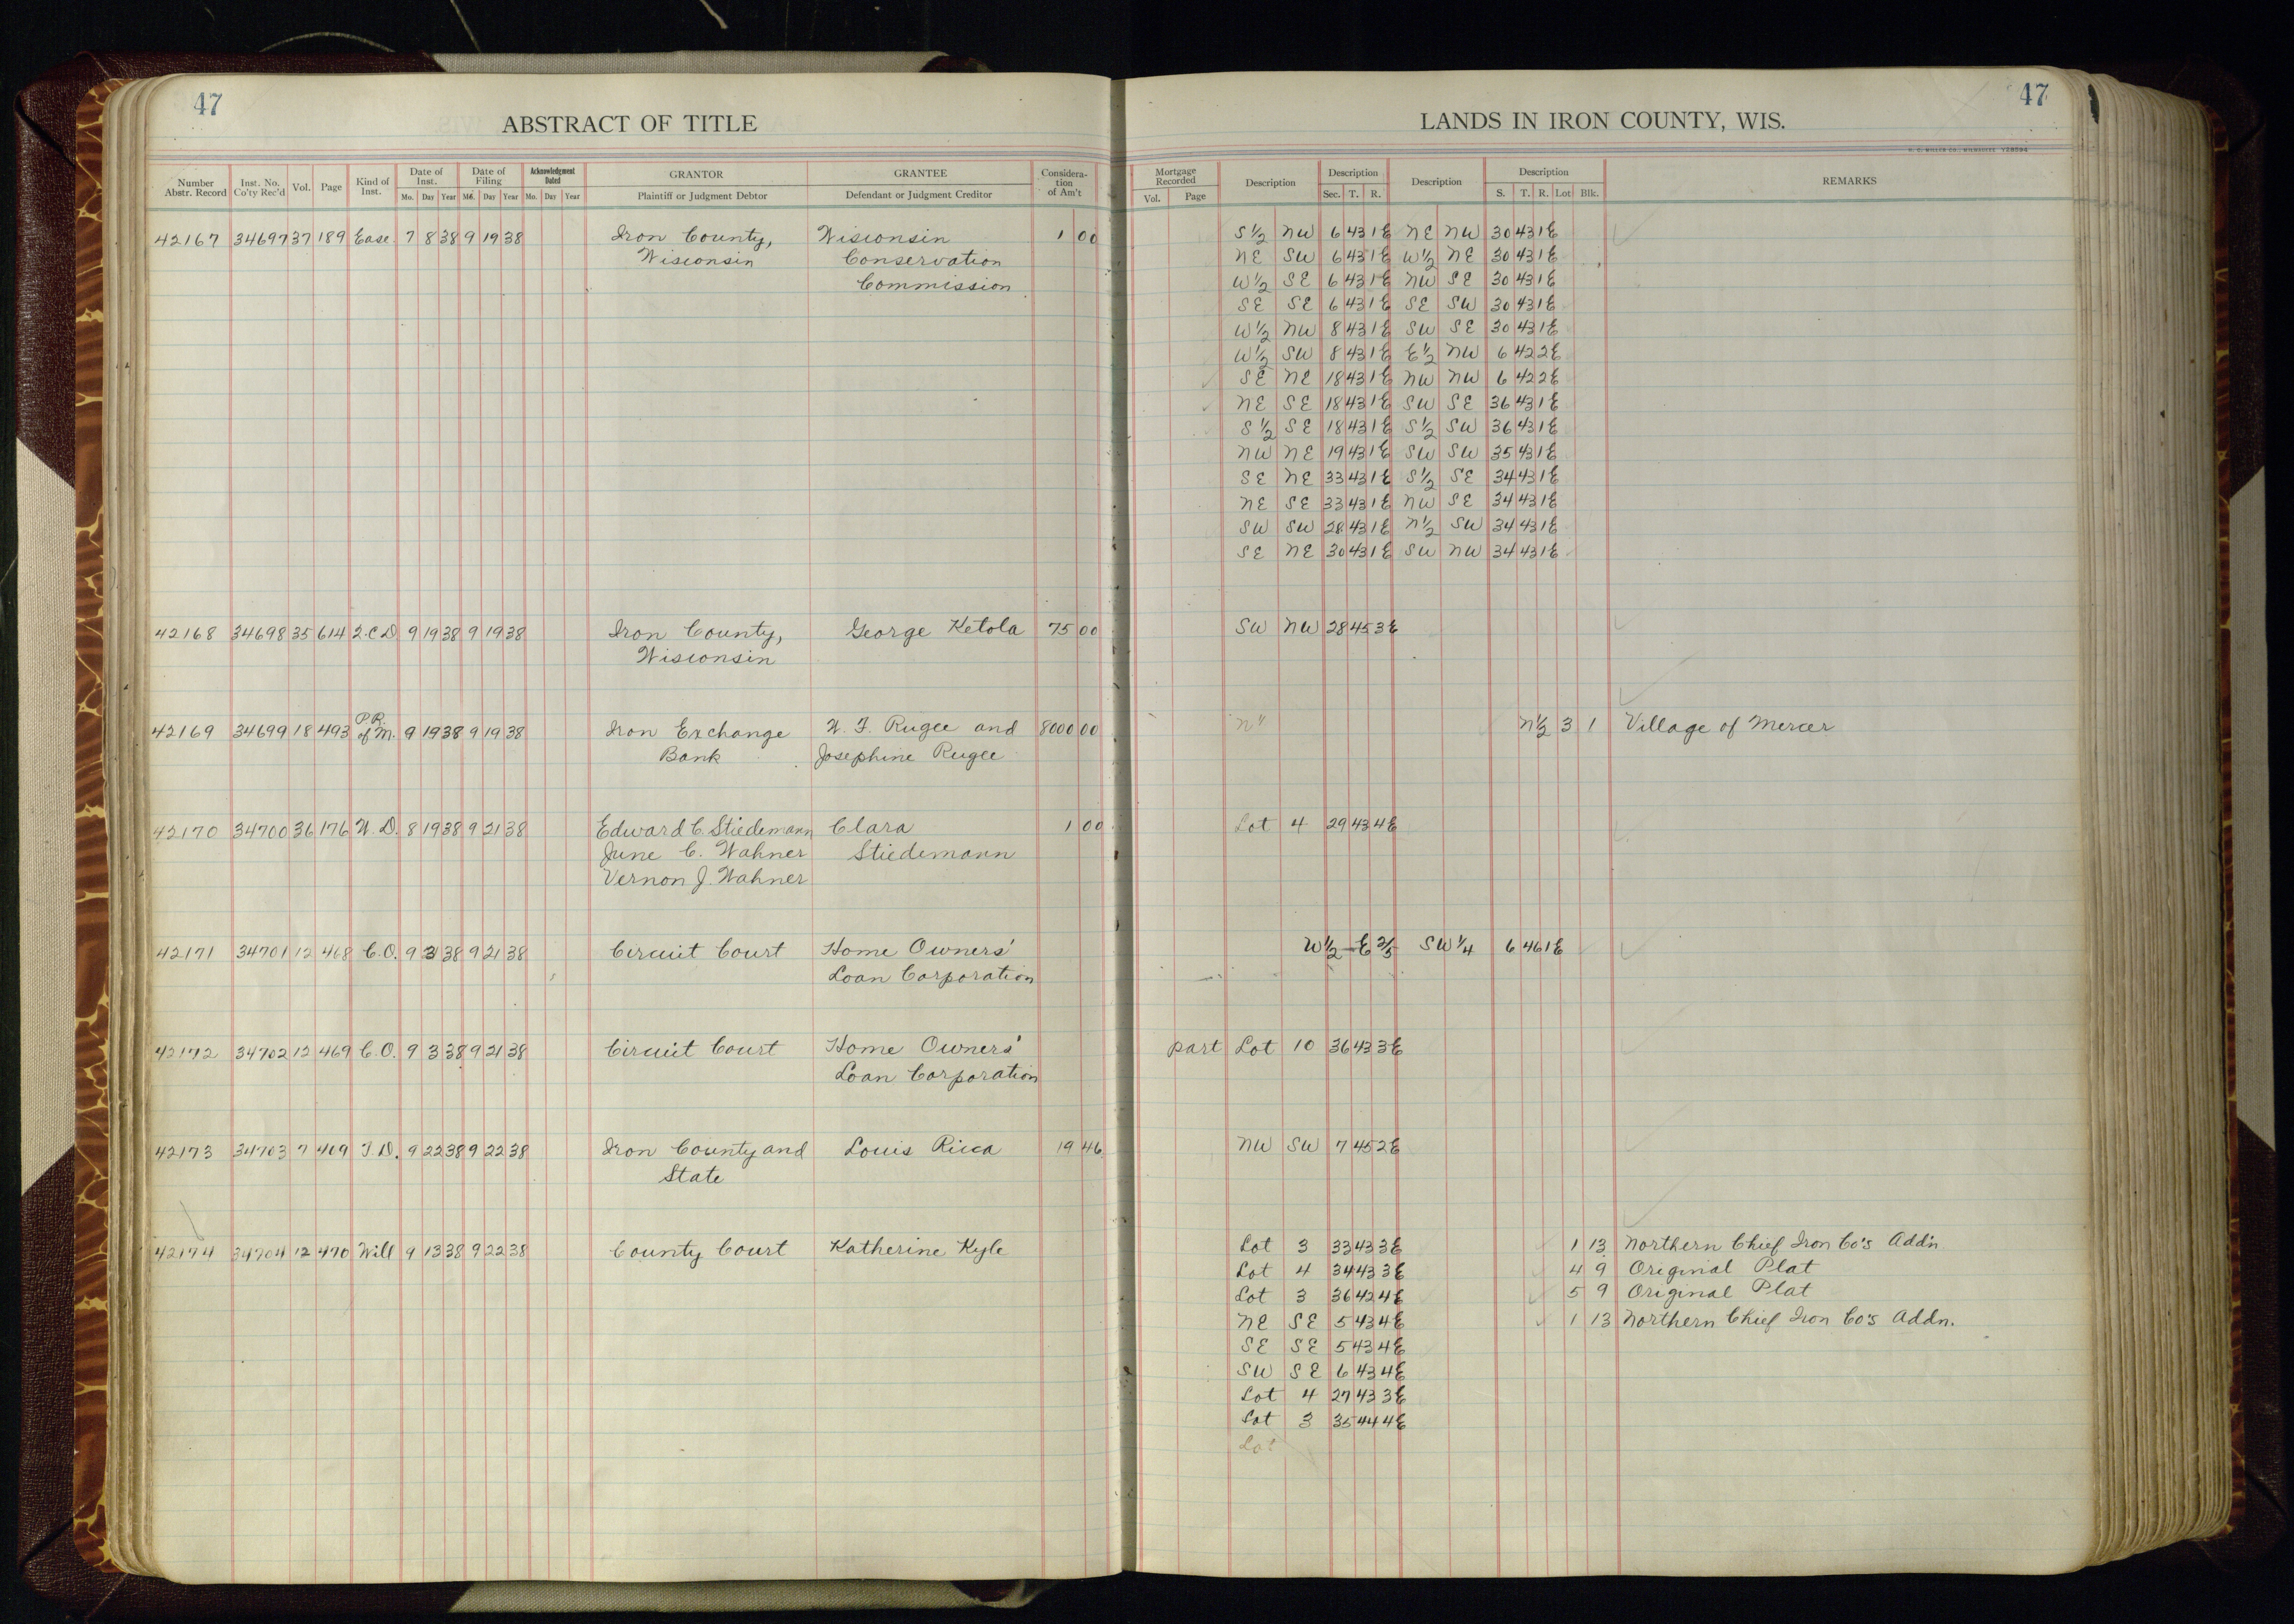 47
ABSTRACT OF TITLE
Number Abstr. Record Inst. No. Co'ty Rec'd Vol. Page Kind of Inst. Date of Inst. Mo. Day Year Date of Filing Mo. Day Year Acknowledgment Dated Mo. Day Year GRANTOR Plaintiff or Judgment Debtor GRANTEE Defendant or Judgment Creditor Consideration of Am't
42167 34697 37 189 Ease. 7 8 38 9 19 38 Iron County, Wisconsin 1 00
Wisconsin Conservation
Commission
42168 34698 35 614 Q.C.D. 9 19 38 9 19 38 Iron County, George Ketola 75 00
Wisconsin
P.R.
42169 34699 18 493 of M. 9 19 38 9 19 38 Iron Exchange W. F. Rugee and 8000 00
Bank Josephine Rugee
42170 34700 36 176 W. D. 8 19 38 9 21 38 Edward C. Stiedemann Clara 1 00
June C. Wahner Stiedemann
Vernon J. Wahner
42171 34701 12 468 C.O. 9 3 38 9 21 38 Circuit Court Home Owners'
Loan Corporation
42172 34702 12 469 C.O. 9 3 38 9 21 38 Circuit Court Home Owners'
Loan Corporation
42173 34703 7 409 T.D. 9 22 38 9 22 38 Iron County and Louis Ricca 19 46
State
42174 34704 12 470 Will 9 13 38 9 22 38 County Court Katherine Kyle
47
LANDS IN IRON COUNTY, WIS.
H. C. MILLER CO., MILWAUKEE
Mortgage Recorded Vol. Page Description Description Sec. T. R. Description Description S. T. R. Lot Blk. REMARKS
S½ NW 6 43 1E NE NW 30 43 1E
NE SW 6 43 1E W½ NE 30 43 1E
W½ SE 6 43 1E NW SE 30 43 1E
SE SE 6 43 1E SE SW 30 43 1E
W½ NW 8 43 1E SW SE 30 43 1E
W½ SW 8 43 1E E½ NW 6 42 2E
SE NE 18 43 1E NW NW 6 42 2E
NE SE 18 43 1E SW SE 36 43 1E
S½ SE 18 43 1E S½ SW 36 43 1E
NW NE 19 43 1E SW SW 35 43 1E
SE NE 33 43 1E S½ SE 34 43 1E
NE SE 33 43 1E NW SE 34 43 1E
SW SW 28 43 1E N½ SW 34 43 1E
SE NE 30 43 1E SW NW 34 43 1E
SW NW 28 45 3E
N½ 3 1 Village of Mercer
Lot 4 29 43 4E
W½ - E ⅖ SW¼ 6 46 1E
part Lot 10 36 43 3E
NW SW 7 45 2E
Lot 3 33 43 3E 1 13 Northern Chief Iron Co's Add'n
Lot 4 34 43 3E 4 9 Original Plat
Lot 3 36 42 4E 5 9 Original Plat
NE SE 5 43 4E 1 13 Northern Chief Iron Co's Addn.
SE SE 5 43 4E
SW SE 6 43 4E
Lot 4 27 43 3E
Lot 3 35 44 4E
Lot